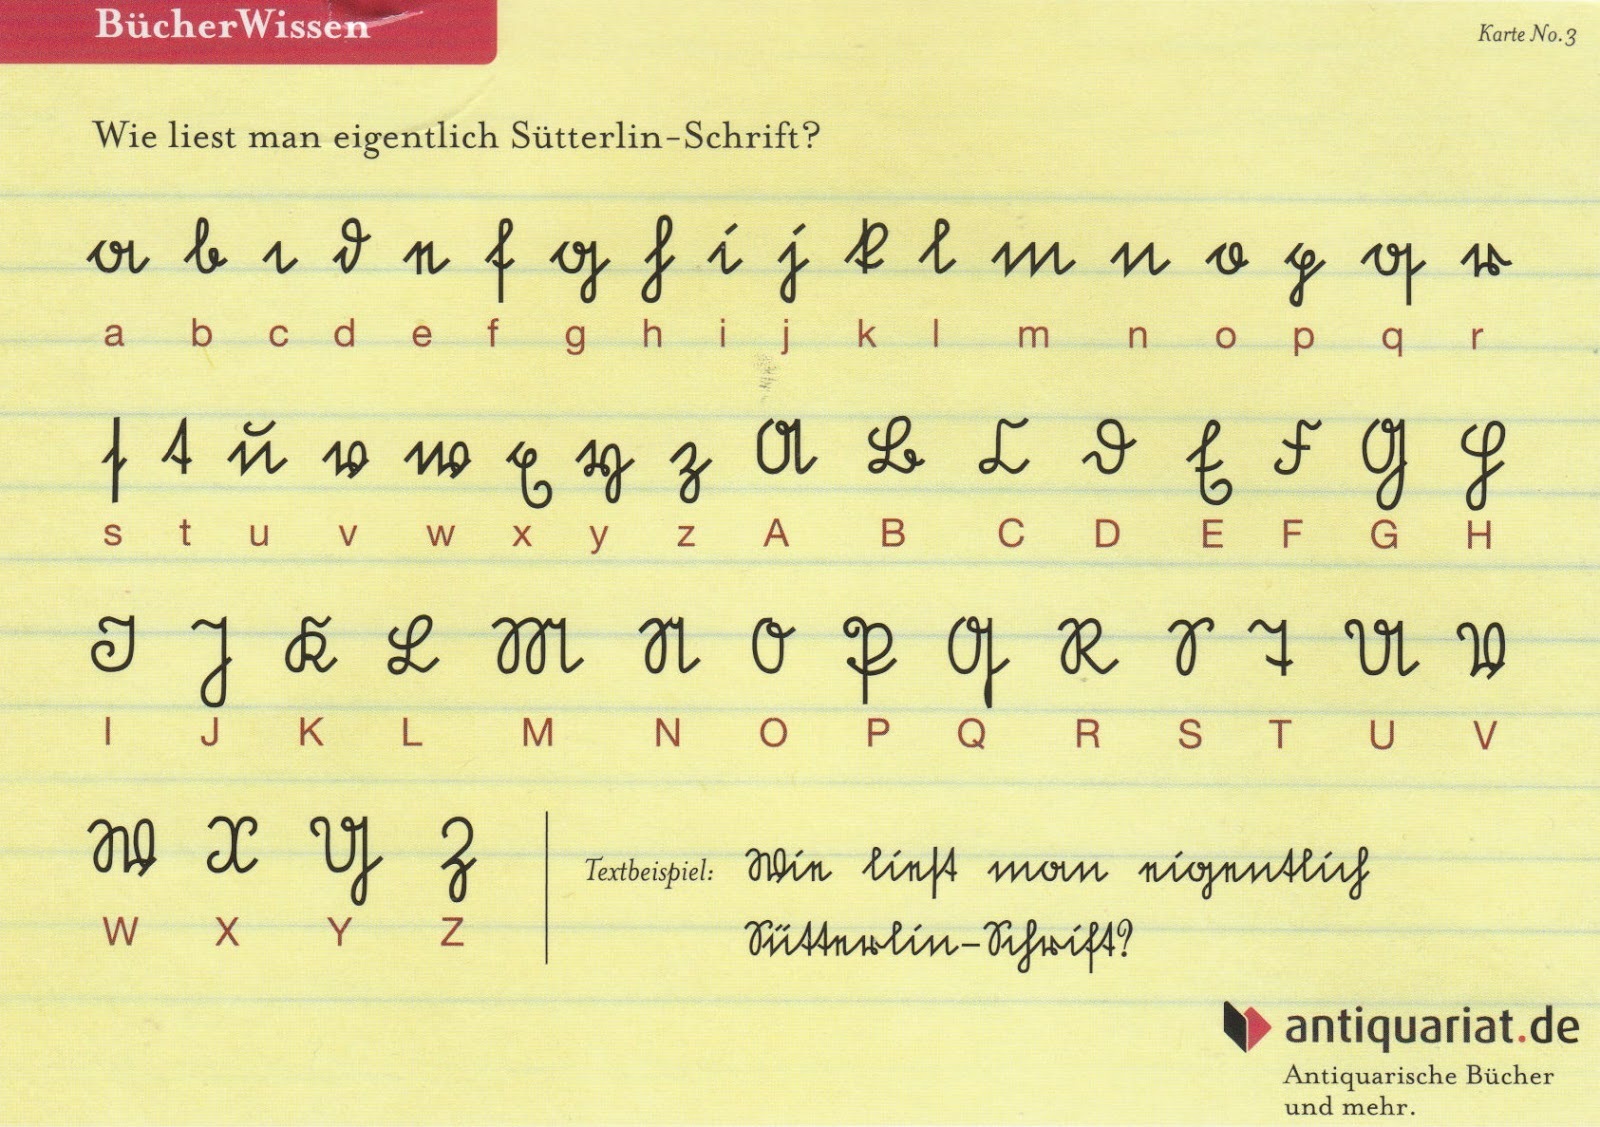 BücherWissen
Karte No. 3
Wie liest man eigentlich Sütterlin-Schrift?
a b c d e f g h i j k l m n o p q r
a b c d e f g h i j k l m n o p q r
s t u v w x y z A B C D E F G H
s t u v w x y z A B C D E F G H
I J K L M N O P Q R S T U V
I J K L M N O P Q R S T U V
W X Y Z
W X Y Z
Textbeispiel: Wie liest man eigentlich
Sütterlin-Schrift?
antiquariat.de
Antiquarische Bücher
und mehr.